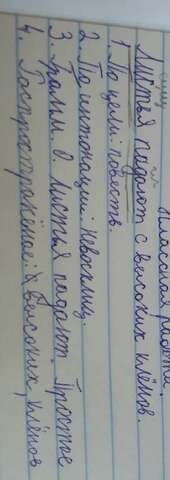 Классная работа.
сущ. гл.
Листья падают с высоких клёнов.
1. По цели: повеств.
2. По интонации: невосклиц.
3. Грамм. О. Листья падают. Простое
4. Распространённое: с высоких клёнов